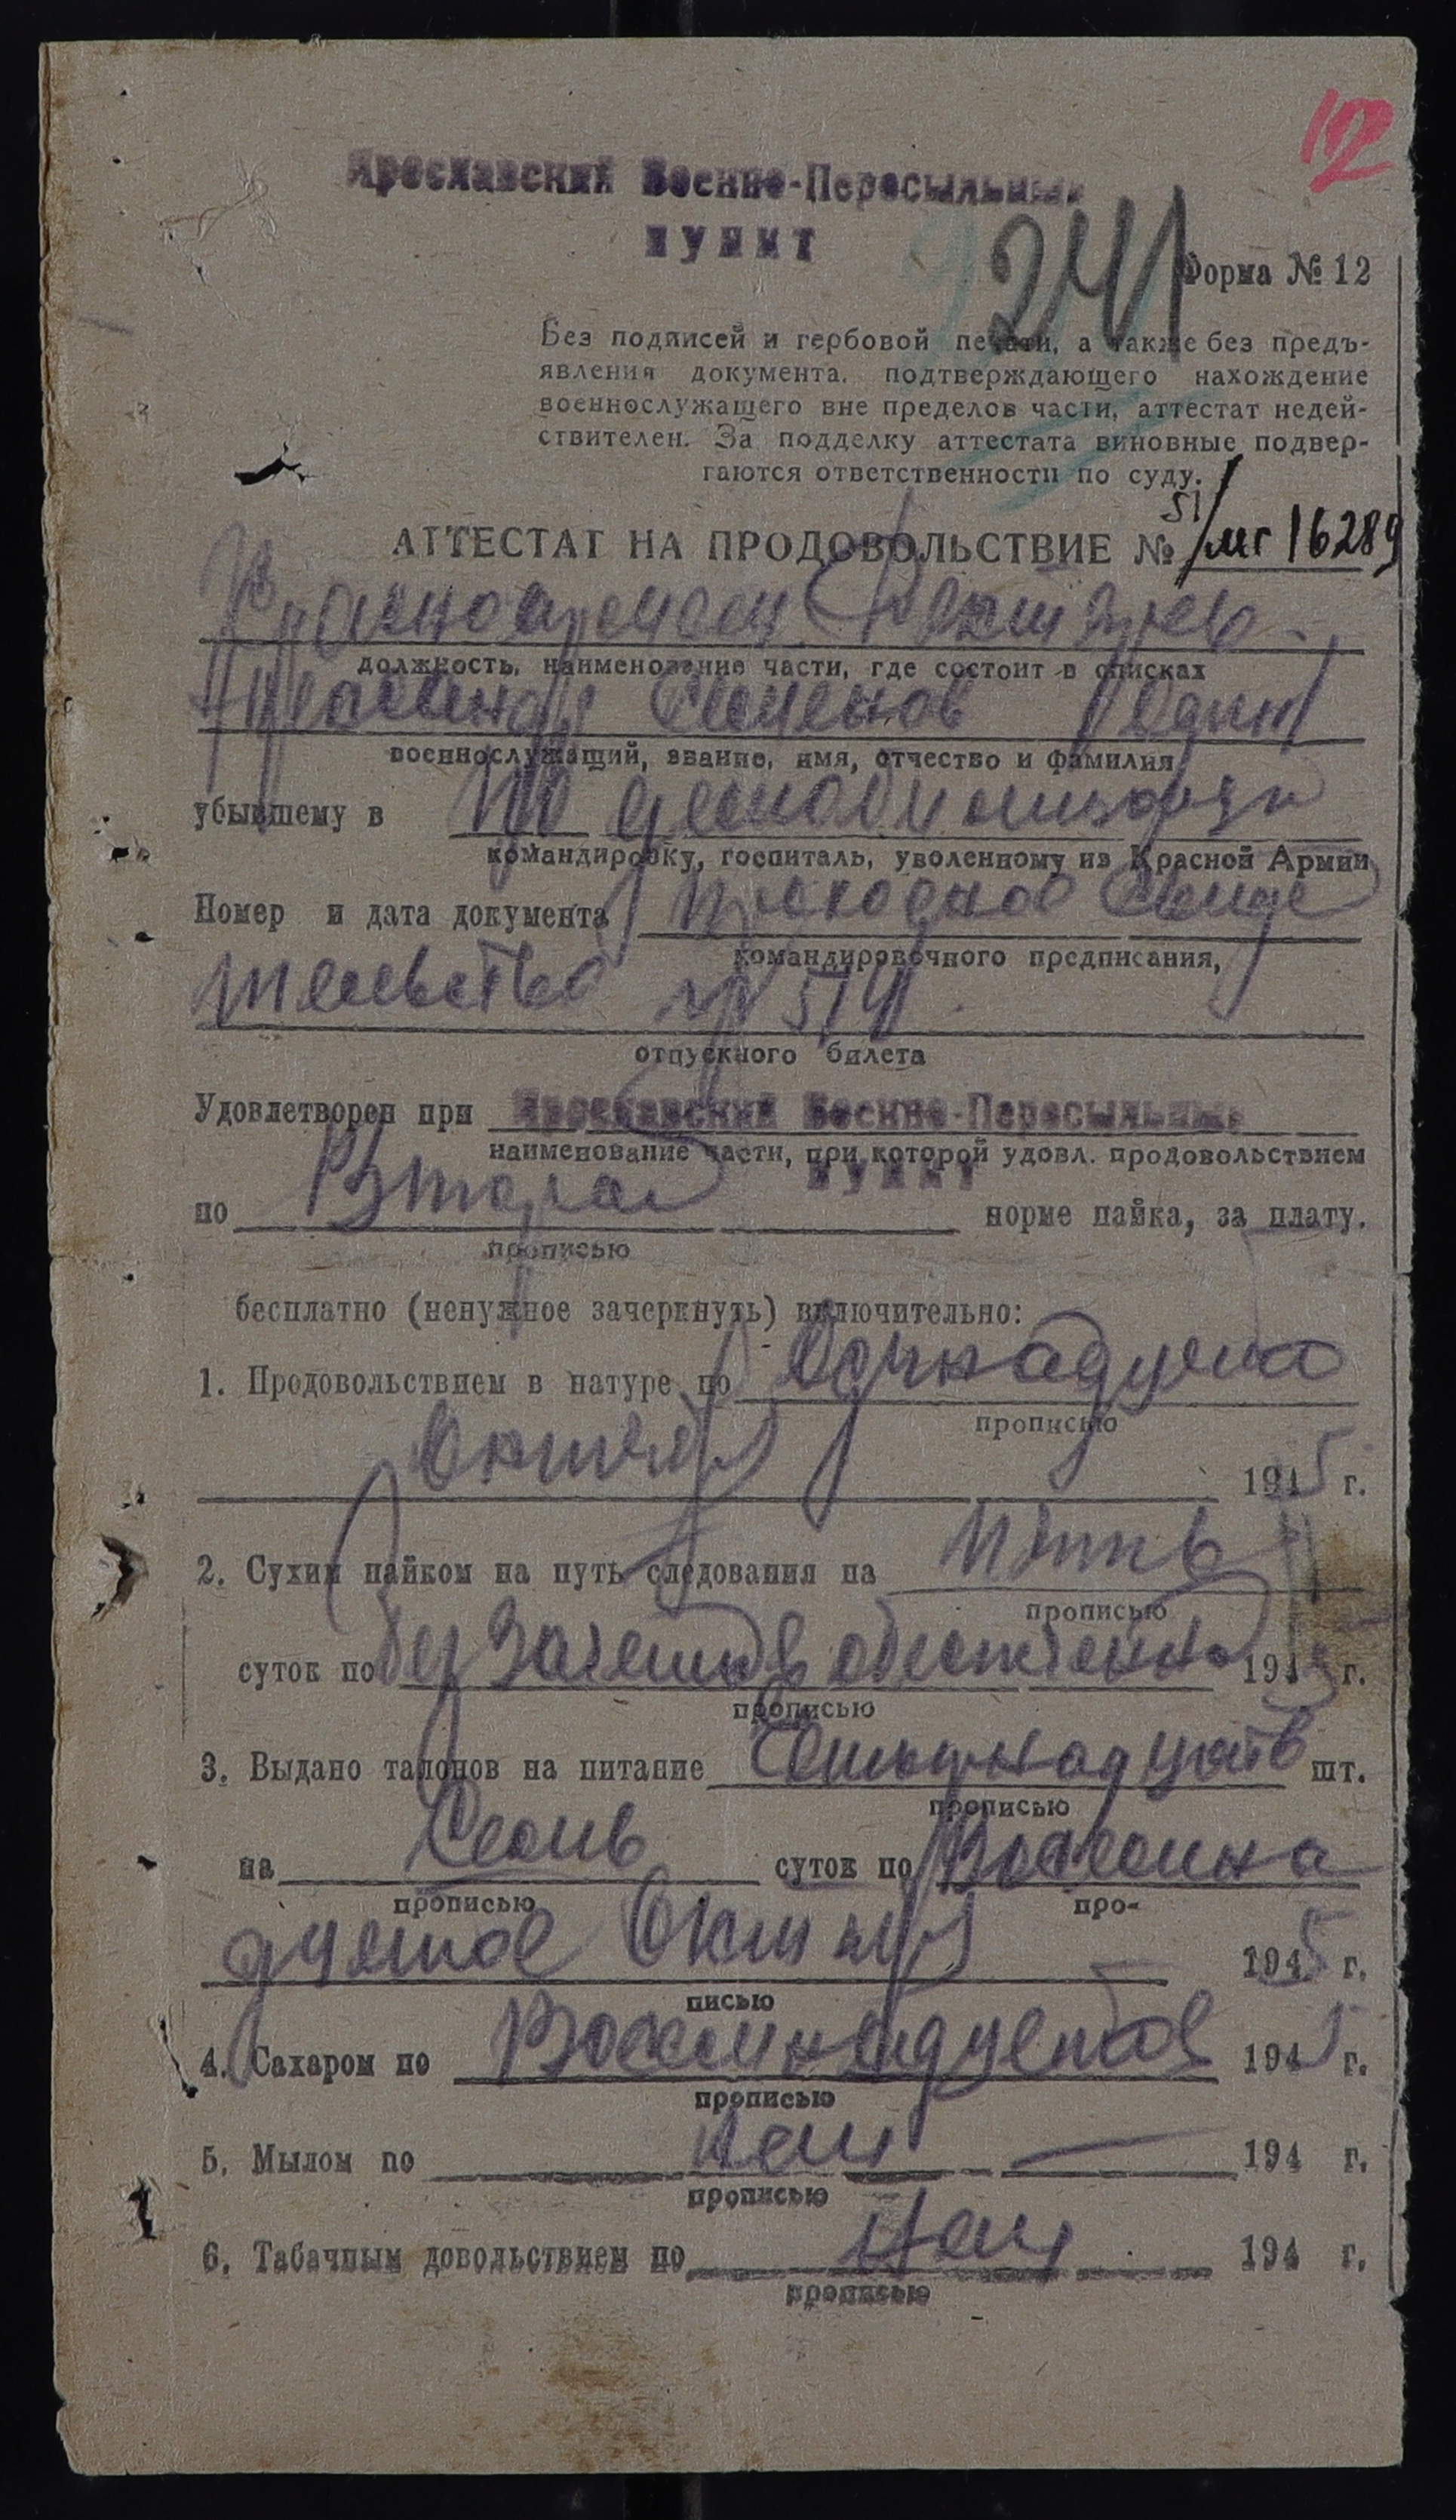 12
Ярославский Военно-Пересыльный
ПУНКТ
241
Форма № 12
Без подписей и гербовой печати, а также без предъ-
явления документа, подтверждающего нахождение
военнослужащего вне пределов части, аттестат недей-
ствителен. За подделку аттестата виновные подвер-
гаются ответственности по суду.
51/
АТТЕСТАТ НА ПРОДОВОЛЬСТВИЕ № мг 16289
Красноармеец
должность, наименование части, где состоит в списках
Семенов Один
военнослужащий, звание, имя, отчество и фамилия
убывшему в по демобилизаци
командировку, госпиталь, уволенному из Красной Армии
Номер и дата документа проходное свиде
командировочного предписания,
тельство № 514
отпускного билета
Удовлетворен при Ярославский Военно-Пересыльный
наименование части, при которой удовл. продовольствием
ПУНКТ
по Второй норме пайка, за плату.
прописью
бесплатно (ненужное зачеркнуть) включительно:
1. Продовольствием в натуре по Одинадцато
прописью
Октября 1945 г.
2. Сухим пайком на путь следования на пять
прописью
суток по без зачетов 1945 г.
прописью
3. Выдано талонов на питание шт.
прописью
на Семь суток по Восемна
прописью про-
дцатое Октября 1945 г.
писью
4. Сахаром по Восемнадцатое 1945 г.
прописью
5. Мылом по нет — 194 г.
прописью
6. Табачным довольствием по нет 194 г.
прописью